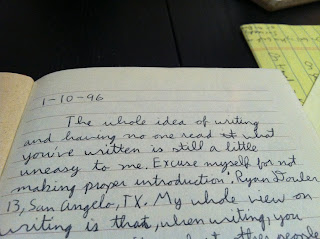 1-10-96
The whole idea of writing
and having no one read what
you've written is still a little
uneasy to me. Excuse myself for not
making proper introduction. Ryan
13, San Angelo, TX. My whole view on
writing is that, when writing, you
other people